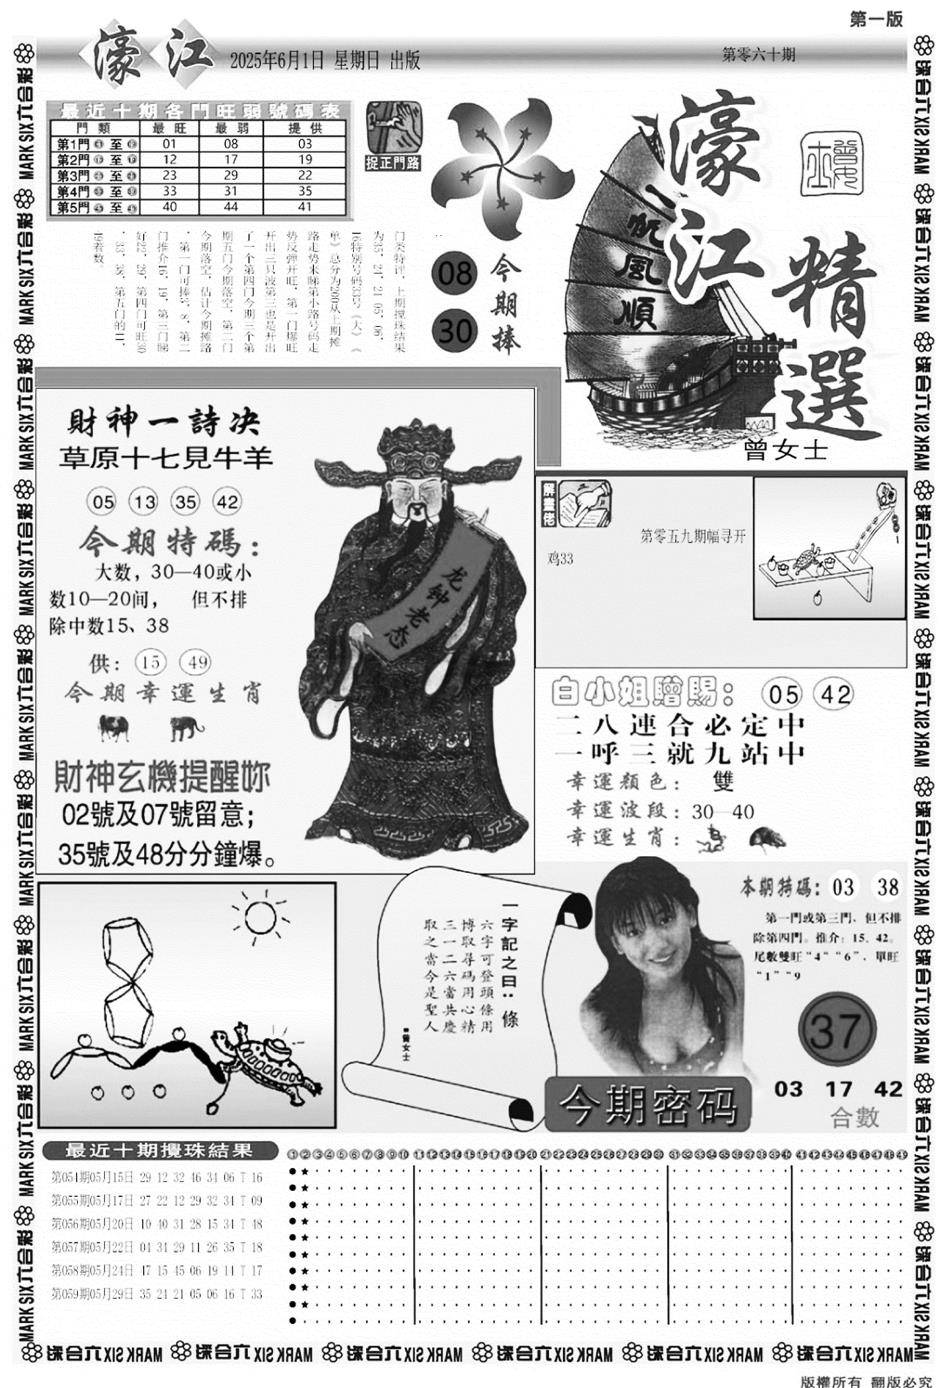 第一版
濠江
2025年6月1日 星期日 出版
第零六十期
最近十期各門旺弱號碼表
門類 最旺 最弱 提供
第1門 至 01 08 03
第2門 至 12 17 19
第3門 至 23 29 22
第4門 至 33 31 35
第5門 至 40 44 41
捉正門路
08
30
今期捧
濠江
精選
一帆風順
曾女士
门类特评,上期攪珠结果
財神一詩决
草原十七見牛羊
05 13 35 42
今期特碼:
大数,30—40或小
数10—20间, 但不排
除中数15、38
供: 15 49
今期幸運生肖
財神玄機提醒妳
02號及07號留意;
35號及48分分鐘爆。
龙钟老态
解畫佬
第零五九期幅寻开
鸡33
白小姐贈賜: 05 42
二八連合必定中
一呼三就九站中
幸運顏色: 雙
幸運波段: 30—40
幸運生肖:
一字記之曰:條
六字可登頭條用
博取尋碼用心精
三一二六當共慶
取之當今是聖人
曾女士
本期特碼: 03 38
第一門或第三門, 但不排
除第四門。推介: 15. 42。
尾數雙旺“4““6”, 單旺
“1”“9
37
03 17 42
合數
今期密码
最近十期攪珠結果
第054期05月15日 29 12 32 46 34 06 T 16
第055期05月17日 27 22 12 29 32 34 T 09
第056期05月20日 10 40 31 28 15 34 T 48
第057期05月22日 04 34 29 11 26 35 T 18
第058期05月24日 47 15 45 06 19 14 T 17
第059期05月29日 35 24 21 05 06 16 T 33
MARK SIX六合彩
版權所有 翻版必究